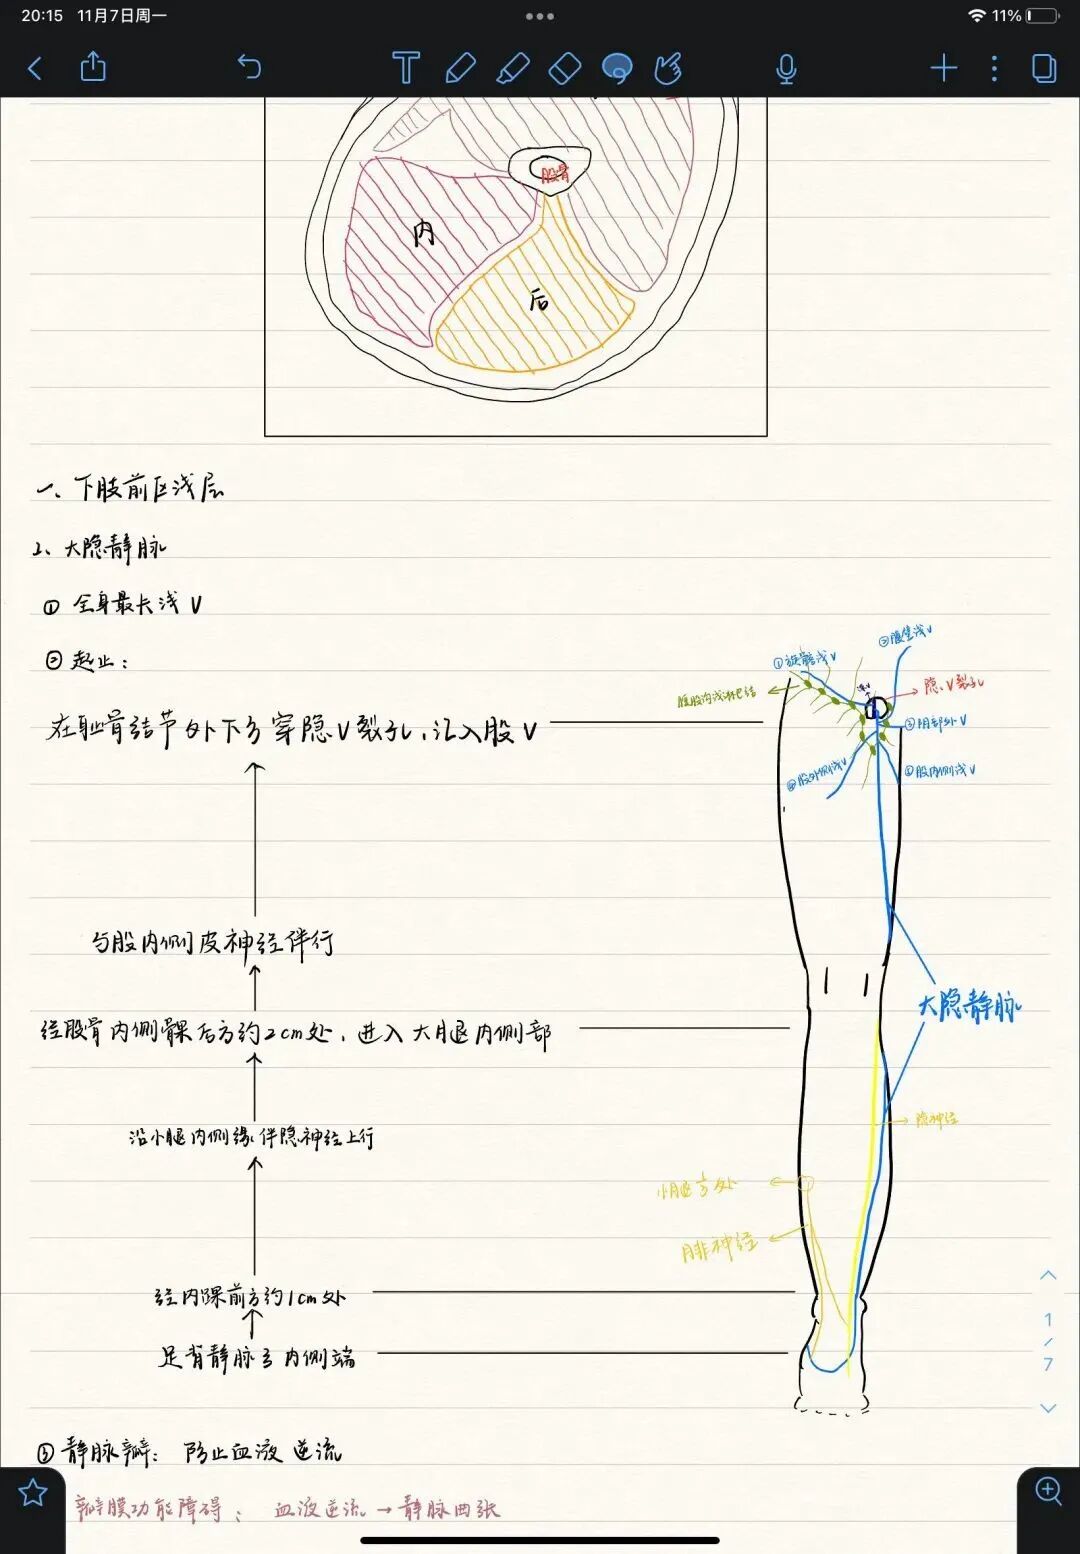 20:15 11月7日周一
11%
T
股骨
内
后
一、下肢前区浅层
2、大隐静脉
① 全身最长浅V
② 起止：
②腹壁浅V
①旋髂浅V
隐V裂孔
腹股沟浅淋巴结
③阴部外V
在耻骨结节外下方穿隐V裂孔，汇入股V
股外侧浅V
股内侧浅V
与股内侧皮神经伴行
大隐静脉
经股骨内侧髁后方约2cm处，进入大腿内侧部
隐神经
沿小腿内侧缘伴隐神经上行
腓神经
经内踝前方约1cm处
1/7
足背静脉弓内侧端
③ 静脉瓣：防止血液逆流
瓣膜功能障碍：血液逆流→静脉曲张